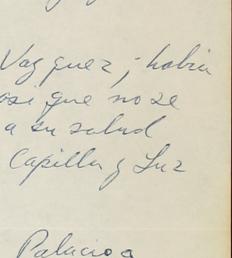 Vazquez; habia
asi que no se
a su salud
Capilla y Luz
Palacios